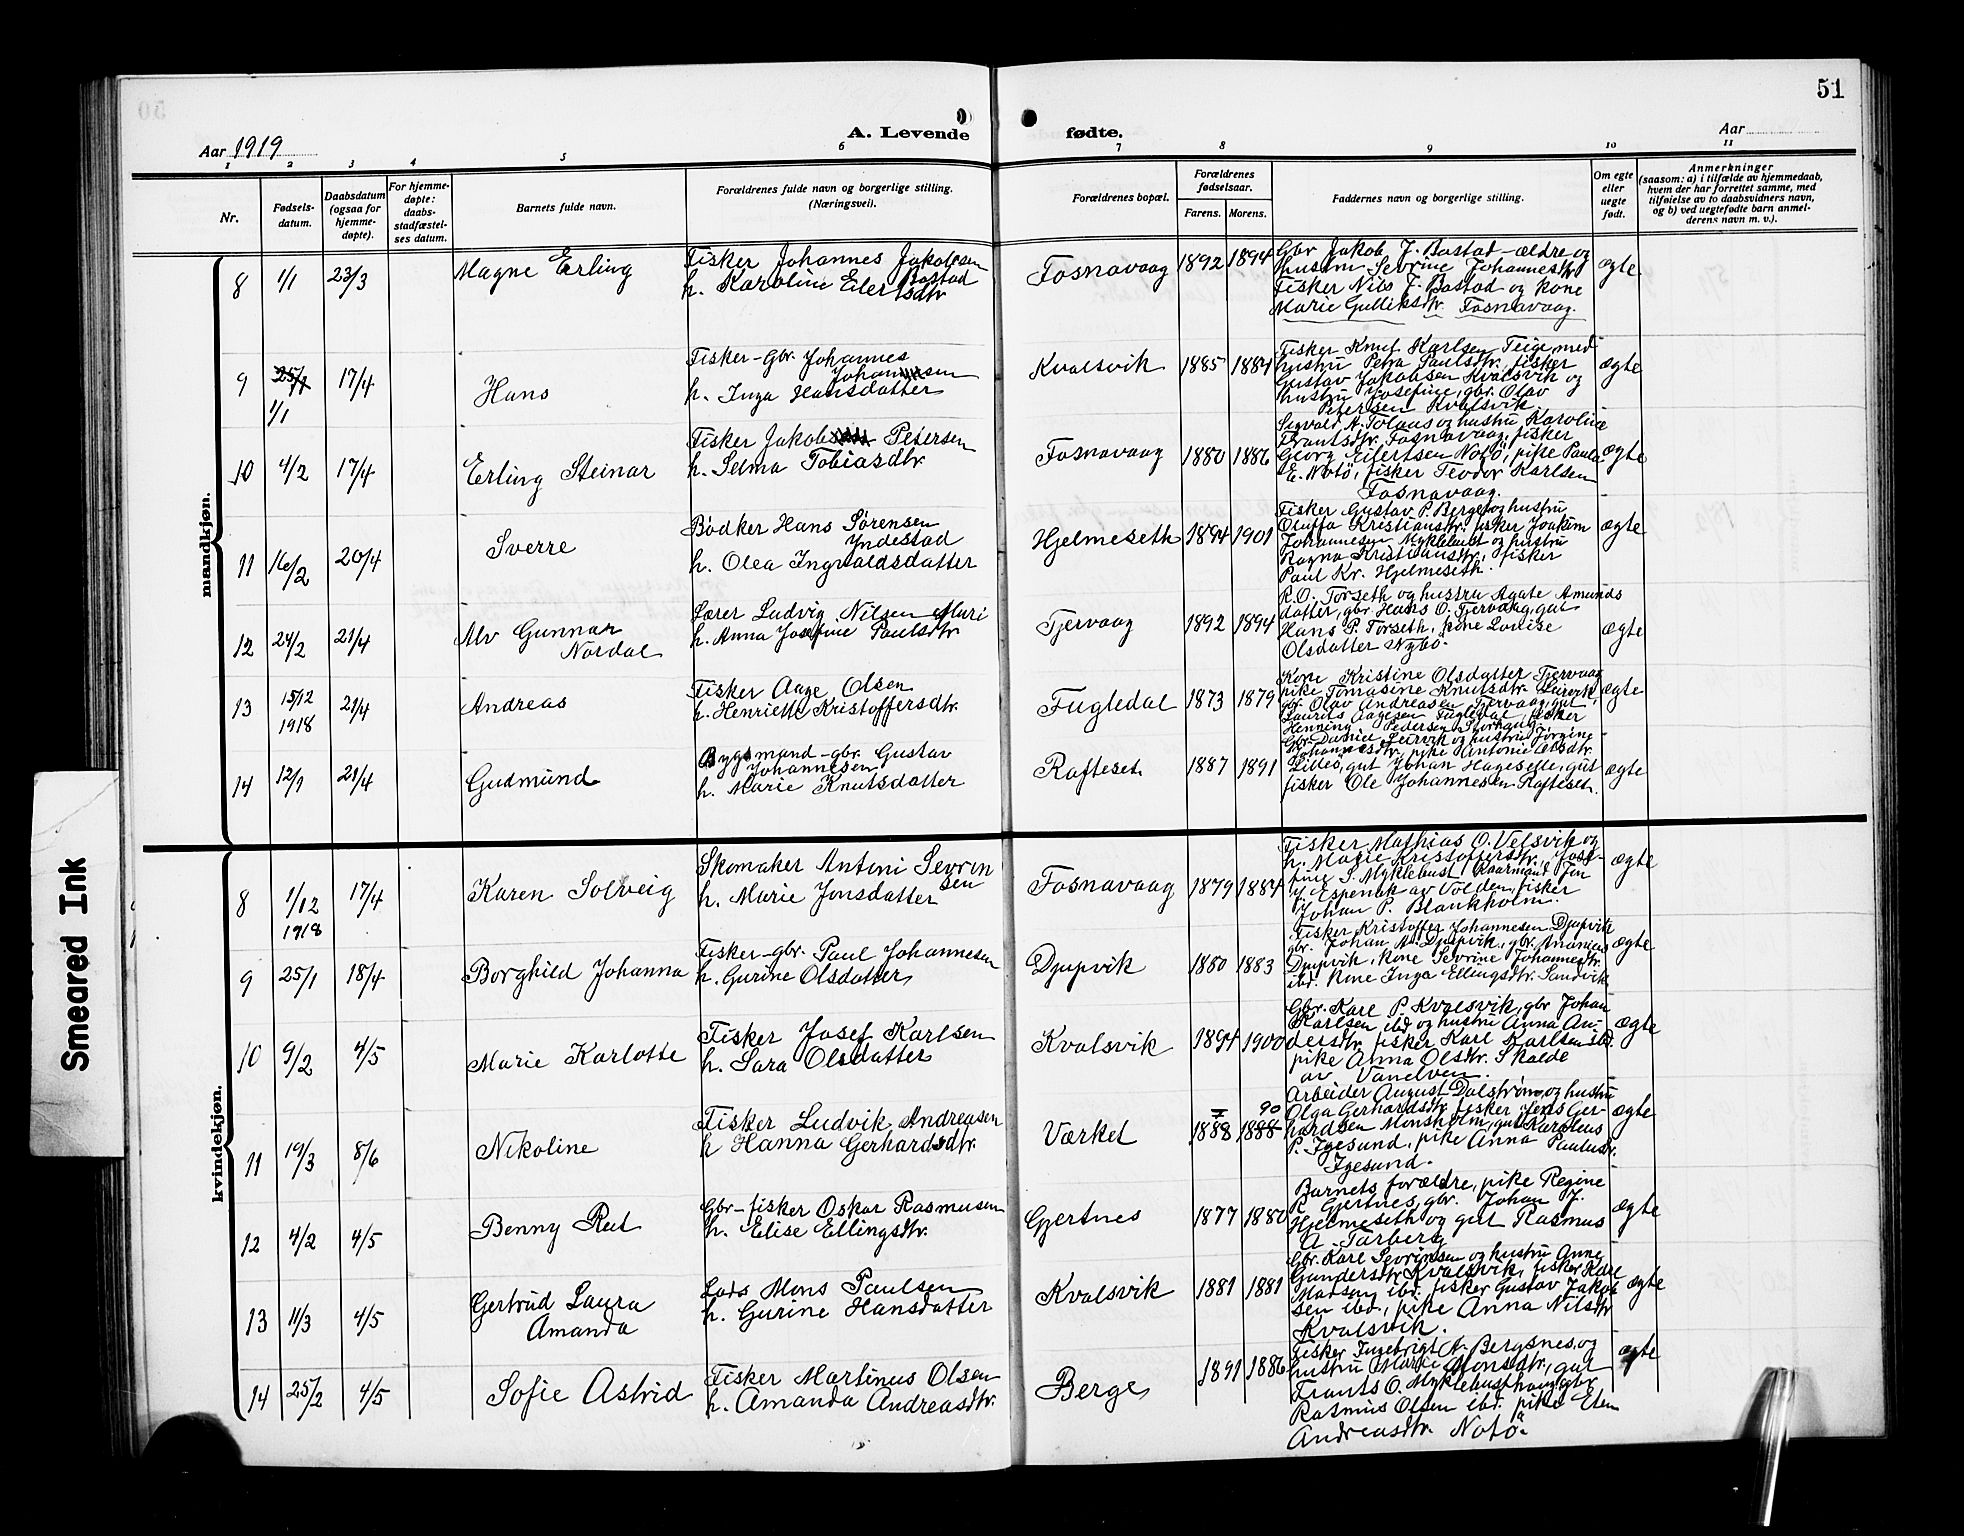 51
A. Levende fødte.
Aar 1919
Aar
1 2 3 4 5 6 7 8 9 10 11
Nr.
Fødsels-
datum.
Daabsdatum
(ogsaa for
hjemme-
døpte).
For hjemme-
døpte:
daabs-
stadfæstel-
ses datum.
Barnets fulde navn.
Forældrenes fulde navn og borgerlige stilling.
(Næringsvei).
Forældrenes bopæl.
Forældrenes
fødselsaar.
Farens. Morens.
Faddernes navn og borgerlige stilling.
Om egte
eller
uegte
født.
Anmerkninger
(saasom: a) i tilfælde av hjemmedaab,
hvem der har forrettet samme, med
tilføielse av to daabsvidners navn,
og b) ved uegtefødte barn anmel-
derens navn m. v.).
mandkjøn.
8 1/1 23/3 Magne Erling
Fisker Johannes Jakobsen
Bastad
h. Karoline Eilertsdtr
Fosnavaag 1892 1894
Gbr Jakob J. Bastad - ældre og
hustru Sevrine Johannesdtr
Fisker Nils J. Bastad og kone
Marie Gulliksdtr. Fosnavaag.
ægte
9 25/1 1/1 17/4 Hans
Fisker - Gbr. Johannes
Johannesen
h. Inga Hansdatter
Kvalsvik 1885 1884
Fisker Knut Karlsen Teige med
hustru Petra Paulsdtr. fisker
Gustav Jakobsen Kvalsvik og
hustru Josefine, gbr. Olav
Petersen Kvalsvik.
ægte
10 4/2 17/4 Erling Steinar
Fisker Jakob Petersen
h. Selma Tobiasdtr.
Fosnavaag 1880 1886
Sigvald A. Tolaas og hustru Karoline
Frantsdtr. Fosnavaag, fisker
Georg Eilertsen Notø, pike Paula
E. Notö, fisker Teodor Karlsen
Fosnavaag.
ægte
11 16/2 20/4 Sverre
Bødker Hans Sørensen
Yndestad
h. Olea Ingvaldsdatter
Hjelmeseth 1894 1901
Fisker Gustav P. Berge og hustru
Oluffa Kristiansdtr. fisker Joakim
Johannesen Myklebust og hustru
Ragna Kristiansdtr., fisker
Paul Kr. Hjelmeseth.
ægte
12 24/2 21/4 Alv Gunnar
Nordal
Lærer Ludvig Nilsen Muri
h. Anna Josefine Paulsdtr
Tjervaag 1892 1894
R.O. Torseth og hustru Agate Amunds
datter, gbr. Hans O. Tjervaag, gut
Hans P. Torseth, kone Louise
Olsdatter Nybö.
ægte
13 15/12 1918 21/4 Andreas
Fisker Aage Olsen
h. Henriette Kristoffersdtr.
Fugledal 1873 1879
Kone Kristine Olsdatter Tjervaag
pike Tomasine Knutsdtr. Leirvik,
gbr. Olav Andreasen Tjervaag, gut
Laurits Aagesen Fugledal, fisker
Henning Pedersen Storhaug.
ægte
14 12/1 21/4 Gudmund
Bygsmand - gbr. Gustav
Johannesen
h. Marie Knutsdatter
Rafteset 1887 1891
Gbr. Daniel Leirvik og hustru Jörgine
Johannesdtr, pike Antonie Olsdtr.
Lilleö, gut Johan Hageselle, gut
fisker Ole Johannesen Rafteset.
ægte
kvindekjøn.
8 1/12 1918 17/4 Karen Solveig
Skomaker Antoni Sevrin
sen
h. Marie Jonsdatter
Fosnavaag 1879 1884
Fisker Mathias O. Velsvik og
h. Marie Kristoffersdtr., Jose-
fine S. Myklebust, Kaarmand Jin
J. Espenak av Volden, fisker
Johan P. Blankholm.
ægte
9 25/1 18/4 Borghild Johanna
Fisker - gbr. Paul Johannesen
h. Gurine Olsdatter
Djupvik 1880 1883
Fisker Kristoffer Johannesen Djupvik
gbr. Johan A. Djupvik, gbr. Ananias
Djupvik, kone Sevrine Johannesdtr.
ibd. kone Inga Ellingsdtr. Sandvik
ægte
10 9/2 4/5 Marie Karlotte
Fisker Josef Karlsen
h. Sara Olsdatter
Kvalsvik 1894 1900
Gbr. Karl P. Kvalsvik, gbr Johan
Karlsen ibd og hustru Anna An-
dersdtr. fisker Karl Karlsen ibd.
pike Anna Olsdtr. Skalde
av Vanelven.
ægte
11 19/3 8/6 Nikoline
Fisker Ludvik Andreasen
h Hanna Gerhardsdtr.
Værket 1888 7 1888 90
Arbeider August Dalström og hustru
Olga Gerhardsdtr. fisker Jens Ger-
hardsen Monsholm, gut Karolus
P. Igesund, pike Anna Paulusdtr.
Igesund.
ægte
12 4/2 4/5 Benny Rut
Gbr - fisker Oskar Rasmusen
h. Elise Ellingsdtr.
Gjertnes 1877 1880
Barnets forældre, pike Regine
R Gjertnes, gbr. Johan J.
Hjelmeseth og gut Rasmus
A. Tarberg
ægte
13 11/3 4/5 Gertrud Laura
Amanda
Lods Mons Paulsen
h. Gurine Hansdatter
Kvalsvik 1881 1881
Gbr. Karl Sevrinsen og hustru Anne
Gundersdtr Kvalsvik, fisker Karl
Madsen ibd. fisker Gustav Jakob
sen ibd., pike Anna Nilsdtr
Kvalsvik.
ægte
14 25/2 4/5 Sofie Astrid
Fisker Martinus Olsen
h. Amanda Andreasdtr.
Berge 1891 1886
Fisker Ingebrigt A. Bergsnes, og
hustru Marie Monsdtr., gut
Frants O. Myklebusthaug, gbr
Rasmus Olsen ibd. pike Elen
Andreasdtr. Notö.
ægte
Smeared Ink